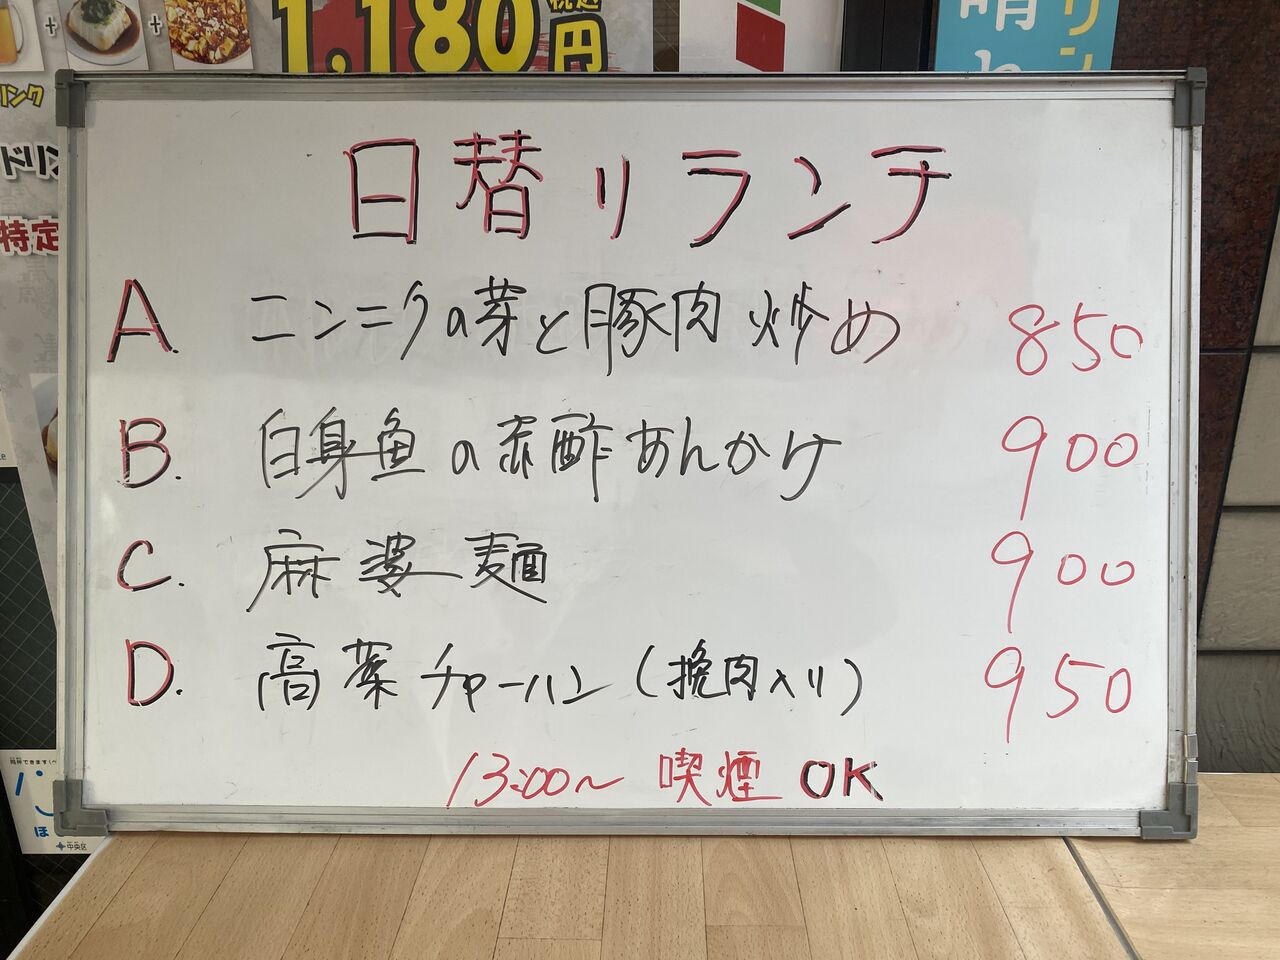 1,180円
税込
リンク
ドリン
特定
晴れ
リン
日替りランチ
A. ニンニクの芽と豚肉炒め 850
B. 白身魚の赤酢あんかけ 900
C. 麻婆麺 900
D. 高菜チャーハン(挽肉入り) 950
13:00~ 喫煙 OK
ほ
中央区